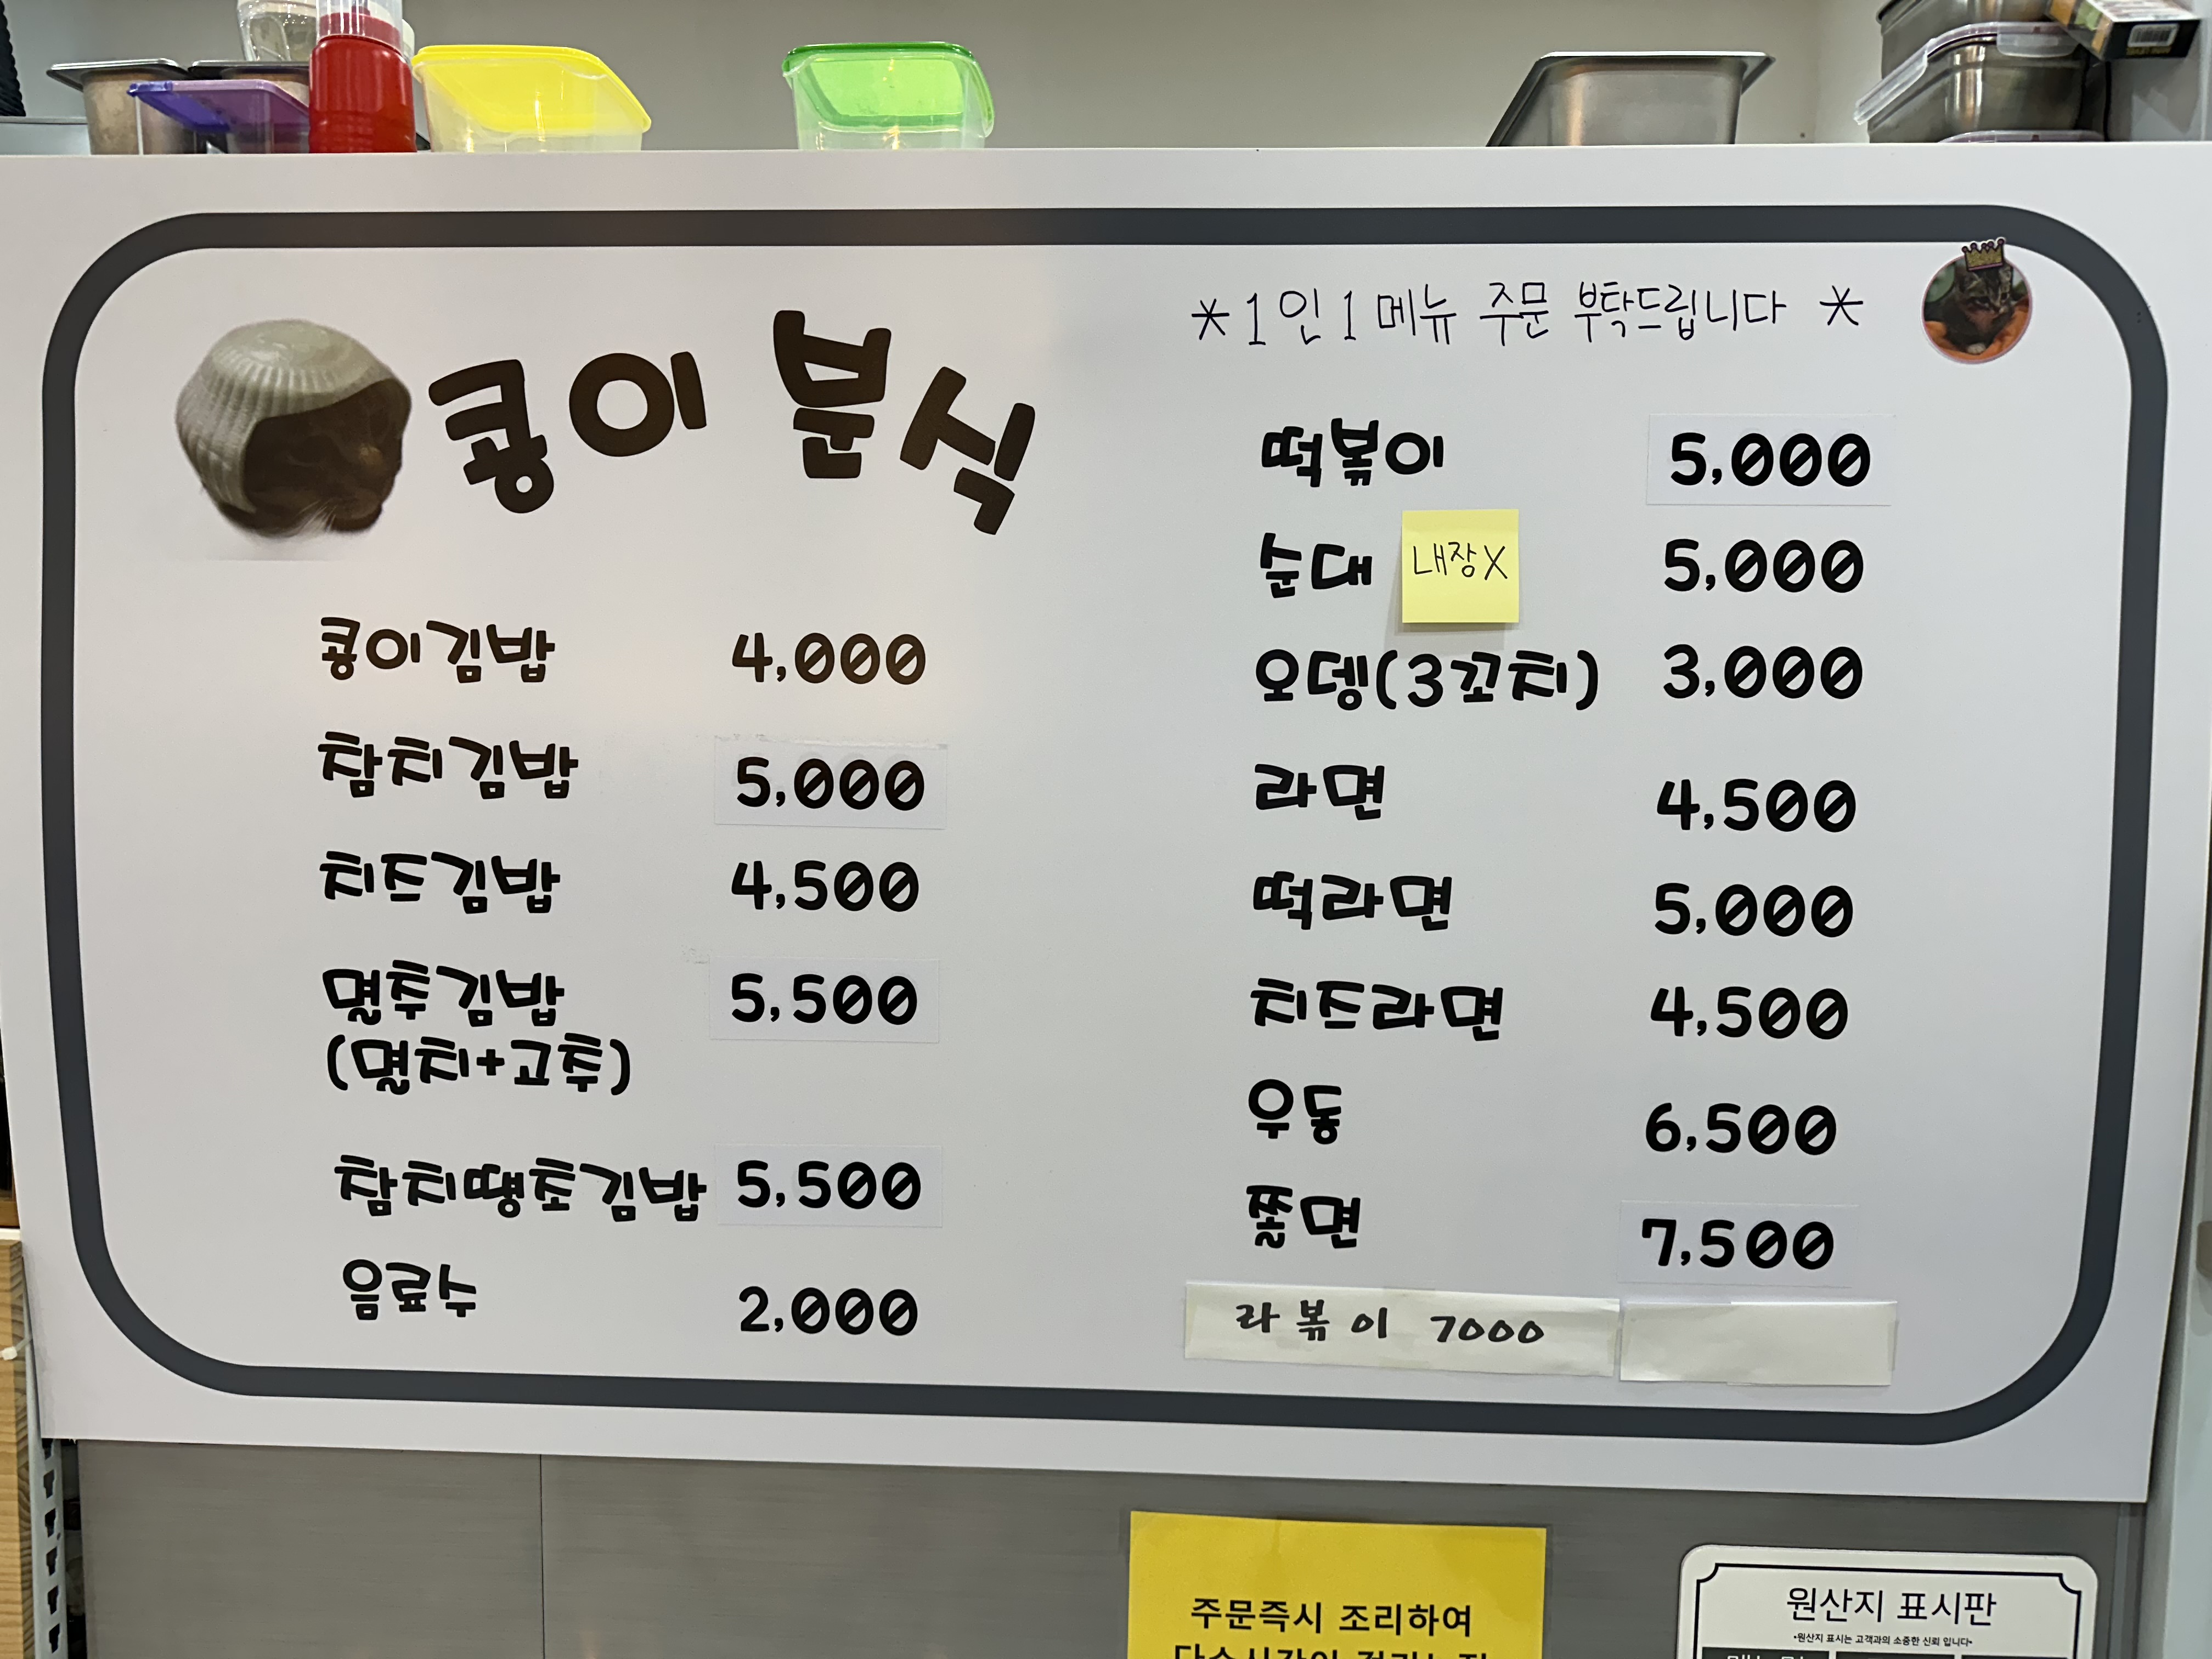 콩이 분식
콩이김밥 4,000
참치김밥 5,000
치즈김밥 4,500
멸추김밥 5,500
(멸치+고추)
참치땡초김밥 5,500
음료수 2,000
*1인 1메뉴 주문 부탁드립니다 *
떡볶이 5,000
순대 내장X 5,000
오뎅(3꼬치) 3,000
라면 4,500
떡라면 5,000
치즈라면 4,500
우동 6,500
쫄면 7,500
라볶이 7000
주문즉시 조리하여
원산지 표시판
•원산지 표시는 고객과의 소중한 신뢰 입니다•